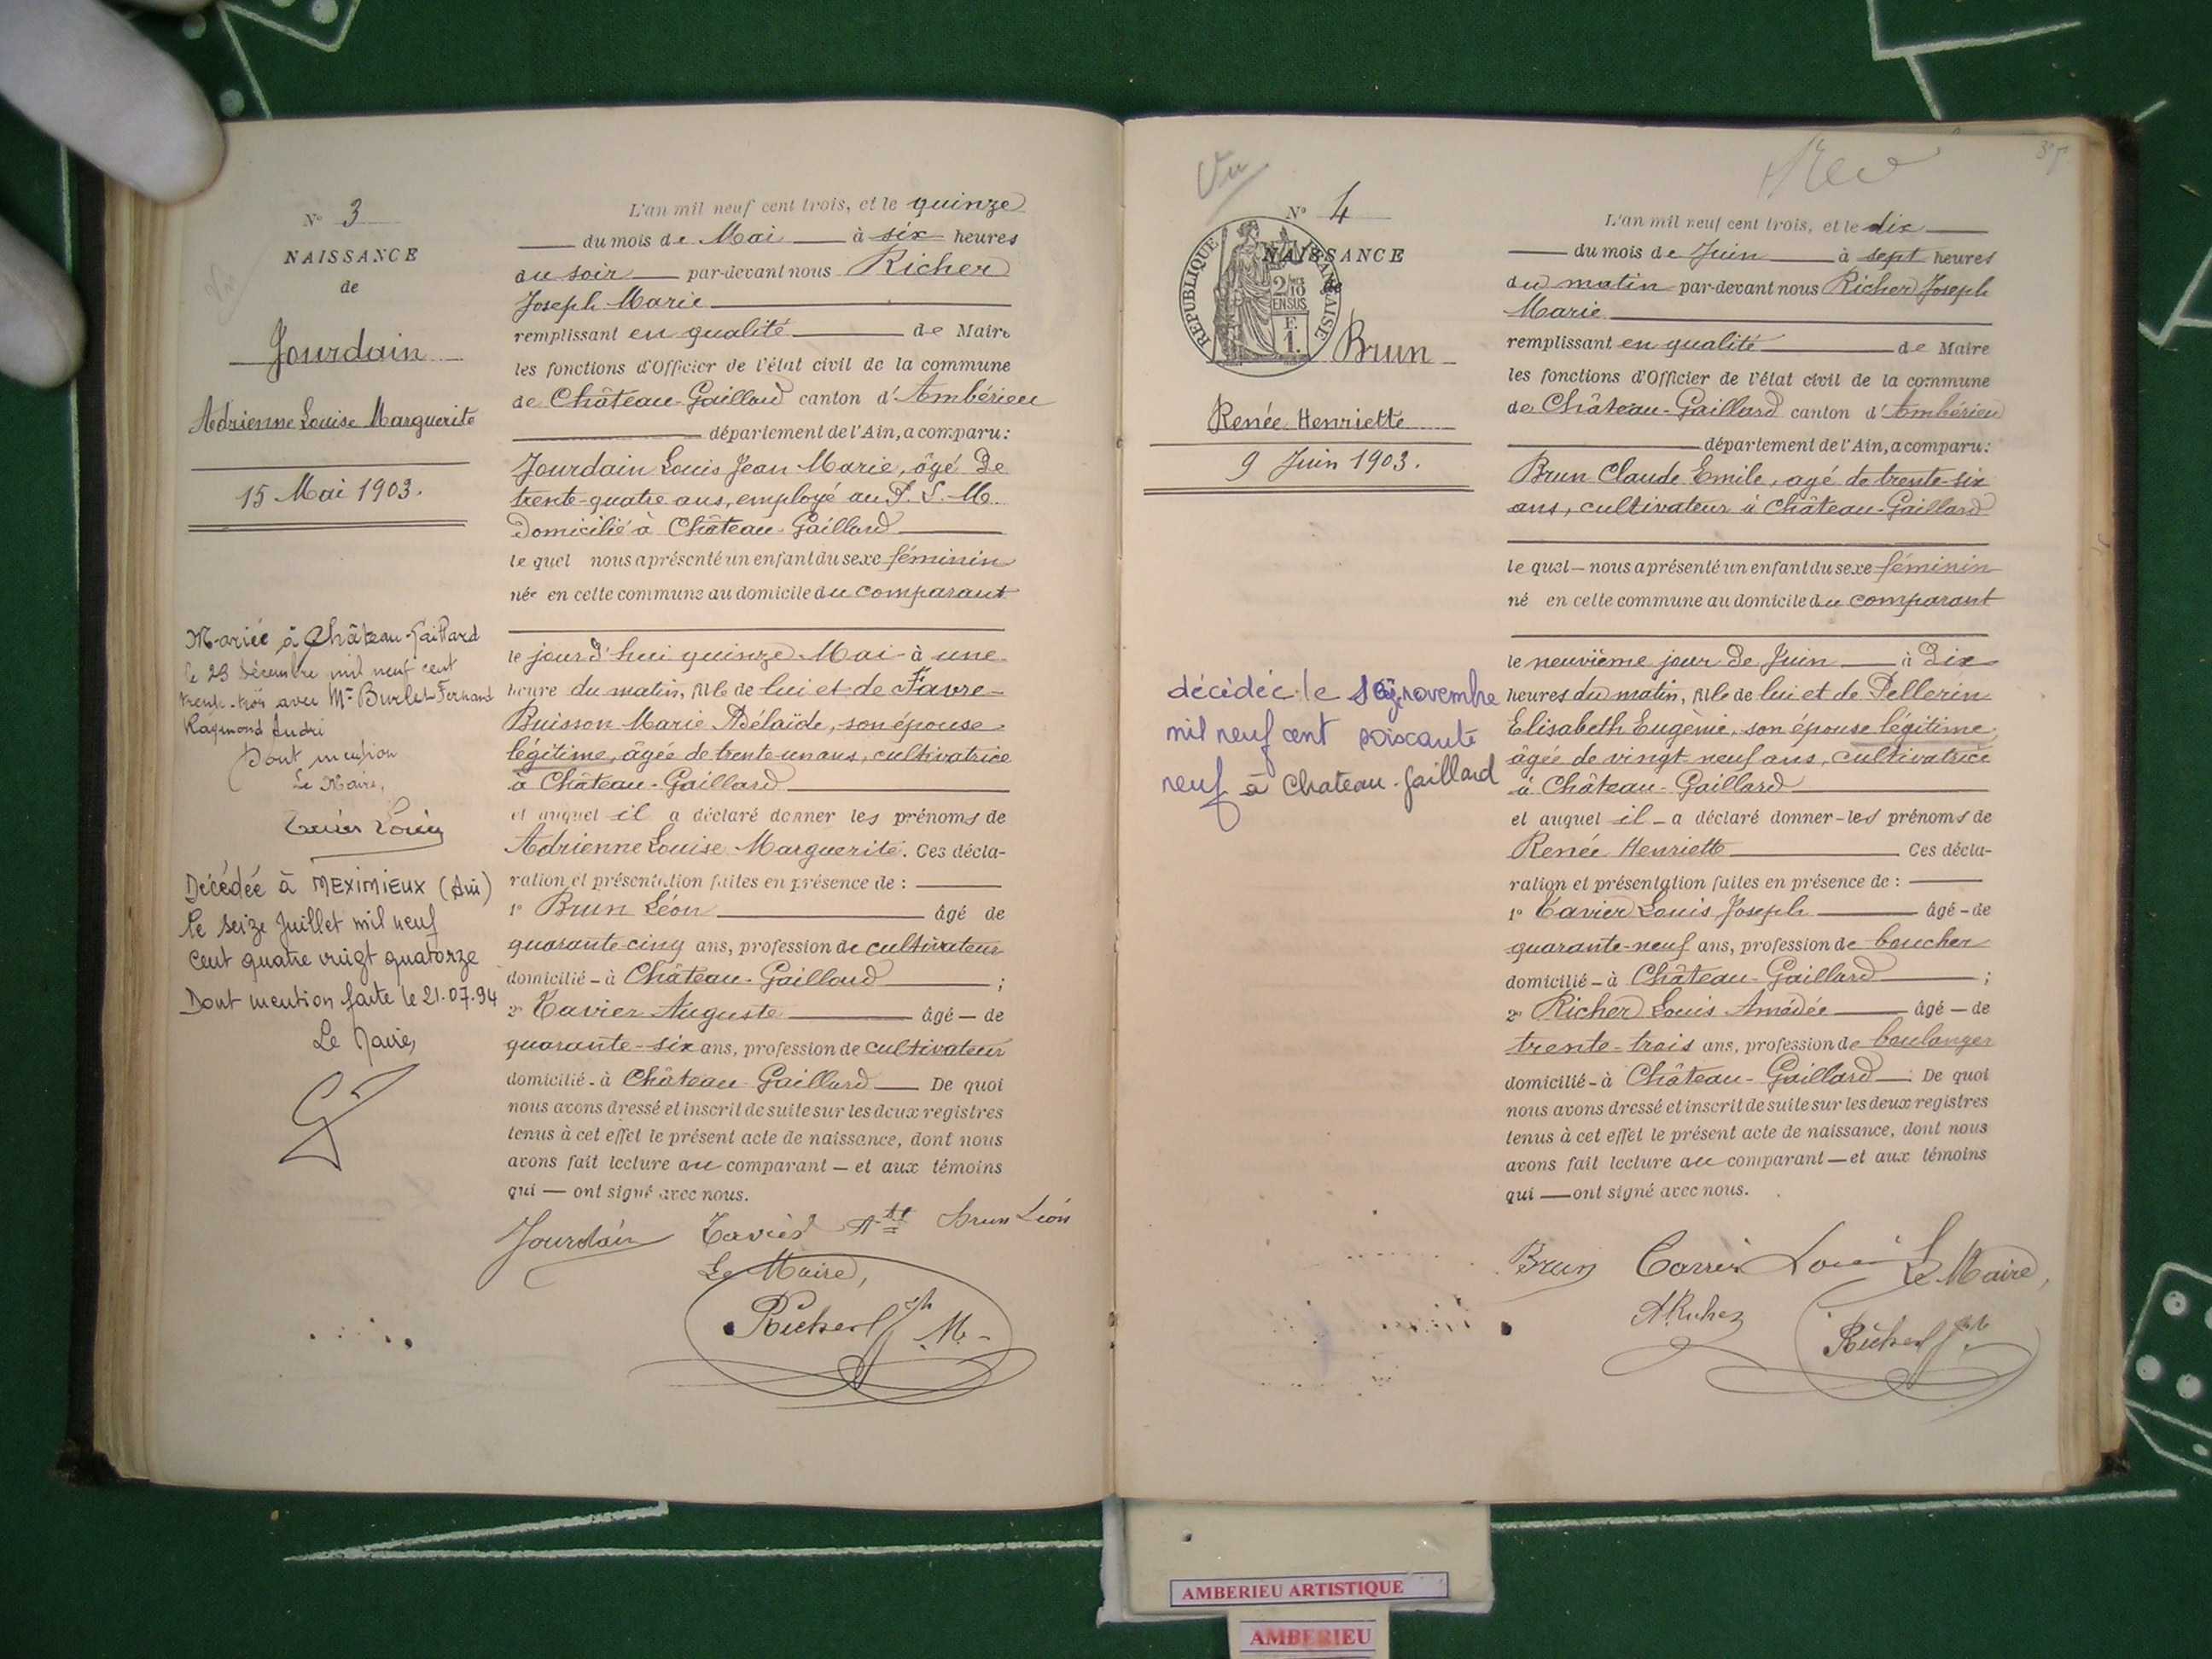 N° 3
NAISSANCE
de
Jourdain
Adrienne Louise Marguerite
15 Mai 1903.
Mariée à Château-Gaillard
le 23 décembre mil neuf cent
trente-trois avec Mr Burlet Fernand
Raymond André
Dont mention
Le Maire,
Décédée à MEXIMIEUX (Ain)
le seize Juillet mil neuf
cent quatre vingt quatorze
Dont mention faite le 21.07.94
Le Maire,
L'an mil neuf cent trois, et le quinze
du mois de Mai à six heures
du soir par-devant nous Richer
Joseph Marie
remplissant en qualité de Maire
les fonctions d'Officier de l'état civil de la commune
de Château-Gaillard canton d'Ambérieu
département de l'Ain, a comparu:
Jourdain Louis Jean Marie, âgé de
trente-quatre ans, employé au P. L. M.
Domicilié à Château-Gaillard
le quel nous a présenté un enfant du sexe féminin
née en cette commune au domicile du comparant
le jourd'hui quinze Mai à une
heure du matin, fille de lui et de Favre-
Buisson Marie Adélaïde, son épouse
légitime, âgée de trente-un ans, cultivatrice
à Château-Gaillard
et auquel il a déclaré donner les prénoms de
Adrienne Louise Marguerite. Ces décla-
ration et présentation faites en présence de :
1° Brun Léon âgé de
quarante-cinq ans, profession de cultivateur
domicilié - à Château-Gaillard ;
2° Tavier Auguste âgé - de
quarante-six ans, profession de cultivateur
domicilié - à Château-Gaillard De quoi
nous avons dressé et inscrit de suite sur les deux registres
tenus à cet effet le présent acte de naissance, dont nous
avons fait lecture au comparant — et aux témoins
qui — ont signé avec nous.
Jourdain Tavier Atte Brun Léon
Le Maire,
Richer Jph M.
Vu
N° 4
NAISSANCE
de
REPUBLIQUE FRANÇAISE
2/10 EN SUS
F. 1.
Brun
Renée Henriette
9 Juin 1903.
décédée le novembre
mil neuf cent soixante
neuf à Chateau-Gaillard
L'an mil neuf cent trois, et le dix
du mois de Juin à sept heures
du matin par-devant nous Richer Joseph
Marie
remplissant en qualité de Maire
les fonctions d'Officier de l'état civil de la commune
de Château-Gaillard canton d'Ambérieu
département de l'Ain, a comparu:
Brun Claude Emile, agé de trente-six
ans, cultivateur à Château-Gaillard
le quel — nous a présenté un enfant du sexe féminin
né en cette commune au domicile du comparant
le neuvième jour de Juin à dix
heures du matin, fille de lui et de Pellerin
Elisabeth Eugènie, son épouse légitime,
âgée de vingt-neuf ans, cultivatrice
à Château-Gaillard
et auquel il - a déclaré donner - les prénoms de
Renée Henriette Ces décla-
ration et présentation faites en présence de :
1° Tavier Louis Joseph âgé - de
quarante-neuf ans, profession de boucher
domicilié - à Château-Gaillard ;
2° Richer Louis Amédée âgé — de
trente-trois ans, profession de boulanger
domicilié - à Château-Gaillard De quoi
nous avons dressé et inscrit de suite sur les deux registres
tenus à cet effet le présent acte de naissance, dont nous
avons fait lecture au comparant — et aux témoins
qui — ont signé avec nous.
Brun Louis Le Maire,
A. Richer Richer
AMBERIEU ARTISTIQUE
AMBERIEU